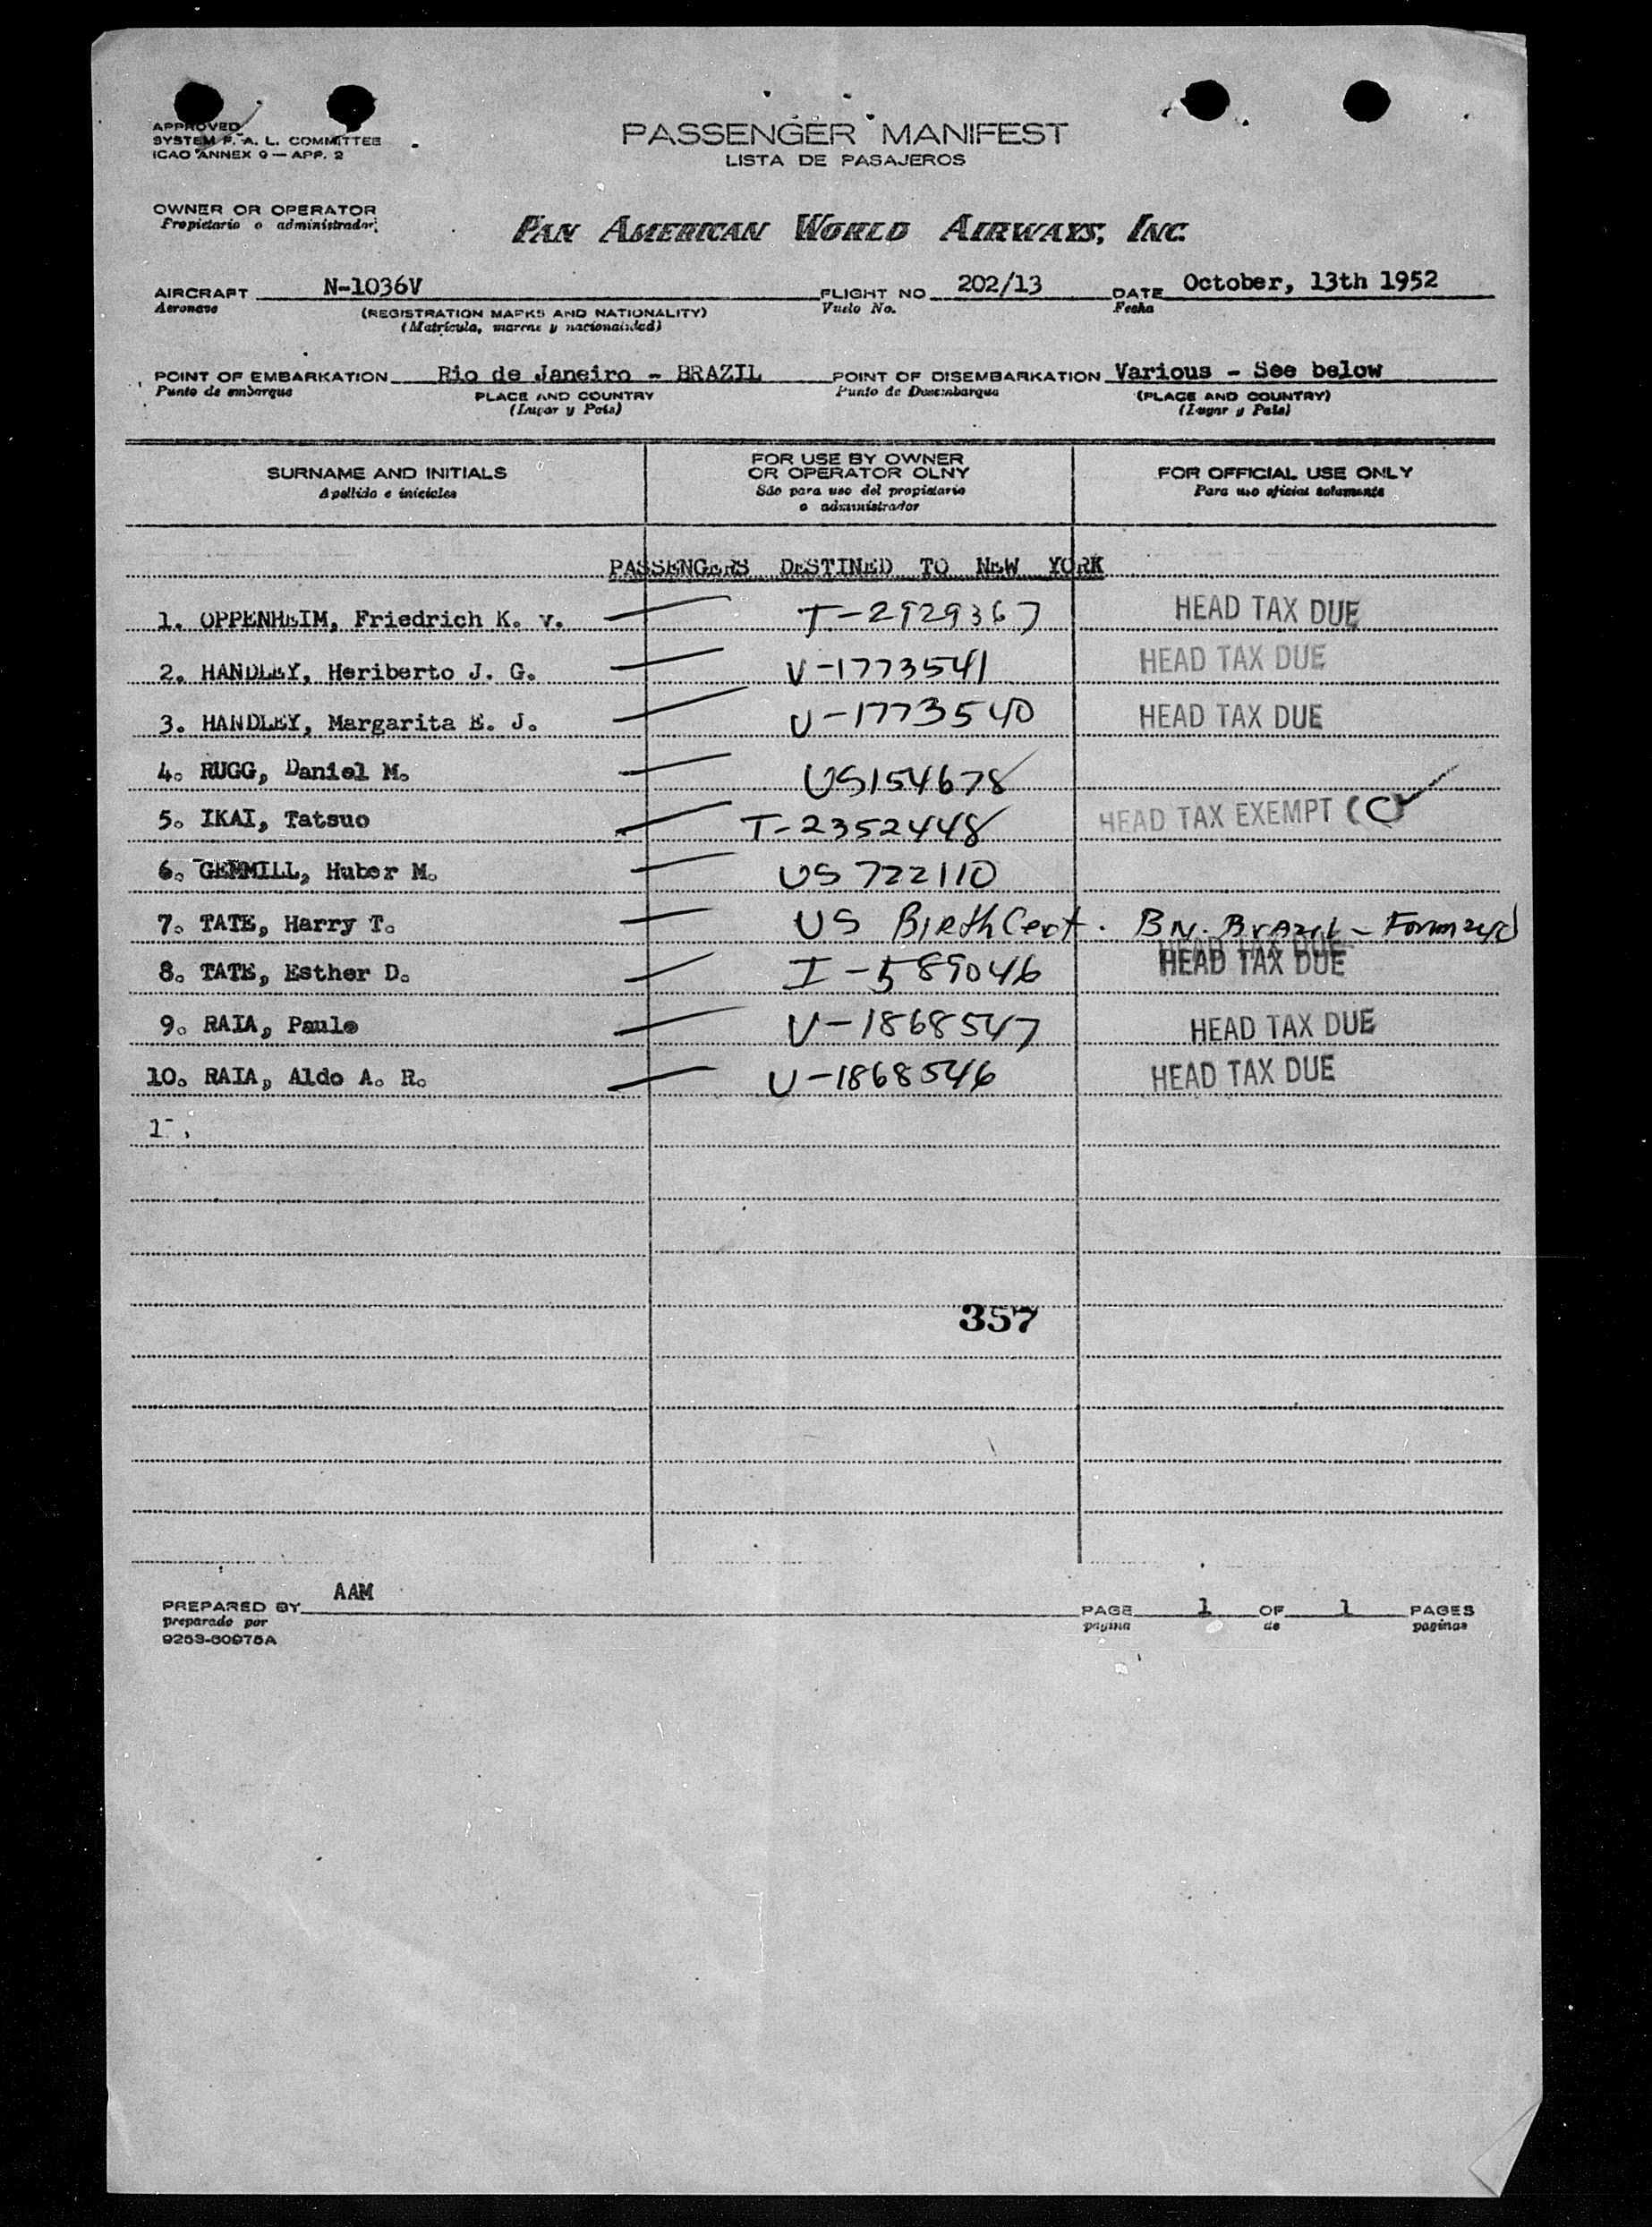 APPROVED
SYSTEM F. A. L. COMMITTEE
ICAO ANNEX 9 — APP. 2
PASSENGER MANIFEST
LISTA DE PASAJEROS
OWNER OR OPERATOR
Propietario o administrador:
PAN AMERICAN WORLD AIRWAYS, INC.
AIRCRAFT N-1036V FLIGHT NO 202/13 DATE October, 13th 1952
Aeronave (REGISTRATION MARKS AND NATIONALITY) Vuelo No. Fecha
(Matricula, marcas y nacionalidad)
POINT OF EMBARKATION Rio de Janeiro - BRAZIL POINT OF DISEMBARKATION Various - See below
Punto de embarque PLACE AND COUNTRY Punto de Desembarque (PLACE AND COUNTRY)
(Lugar y País) (Lugar y País)
SURNAME AND INITIALS FOR USE BY OWNER OR OPERATOR OLNY FOR OFFICIAL USE ONLY
Apellido e iniciales Sólo para uso del propietario o administrador Para uso oficial solamente
PASSENGERS DESTINED TO NEW YORK
1. OPPENHEIM, Friedrich K. v. T-2929367 HEAD TAX DUE
2. HANDLEY, Heriberto J. G. V-1773541 HEAD TAX DUE
3. HANDLEY, Margarita E. J. V-1773540 HEAD TAX DUE
4. RUGG, Daniel M. US154678
5. IKAI, Tatsuo T-2352448 HEAD TAX EXEMPT (C)
6. GEMMILL, Huber M. US 722110
7. TATE, Harry T. US Birth Cert. BN. Brazil - Form 240
8. TATE, Esther D. I-589046 HEAD TAX DUE
9. RAIA, Paulo V-1868547 HEAD TAX DUE
10. RAIA, Aldo A. R. V-1868546 HEAD TAX DUE
357
PREPARED BY AAM PAGE 1 OF 1 PAGES
preparado por página de paginas
9253-50975A